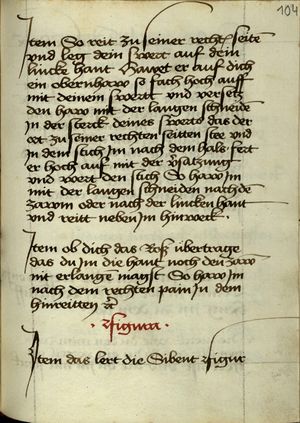 104
Item So reit zu seiner rechtn̄ seitē
vnd leg dein swert auf dein
lincke hant Hawet er auf dich
ein obernhaw so fach hoch auff
mit deinem swertt vnd versetz
den haw mit der langen schneide
in der sterck deines swerts das der
ort zu seiner rechten seitten stee vnd
in dem stich im nach dem hals fert
er hoch auf mit der vsatzung
vnd wert den stich So haw im
mit der langen schneiden nach dē
zawm oder nach der lincken hant
vnd reitt neben im hinweck ·
Item ob dich das Roß übertrage
das du im die hant noch den zaw
mit erlange magst So haw im
nach dem rechten pain in dem
hinreitten ꝛc
· Figura ·
Item das lert die Sibent Figur